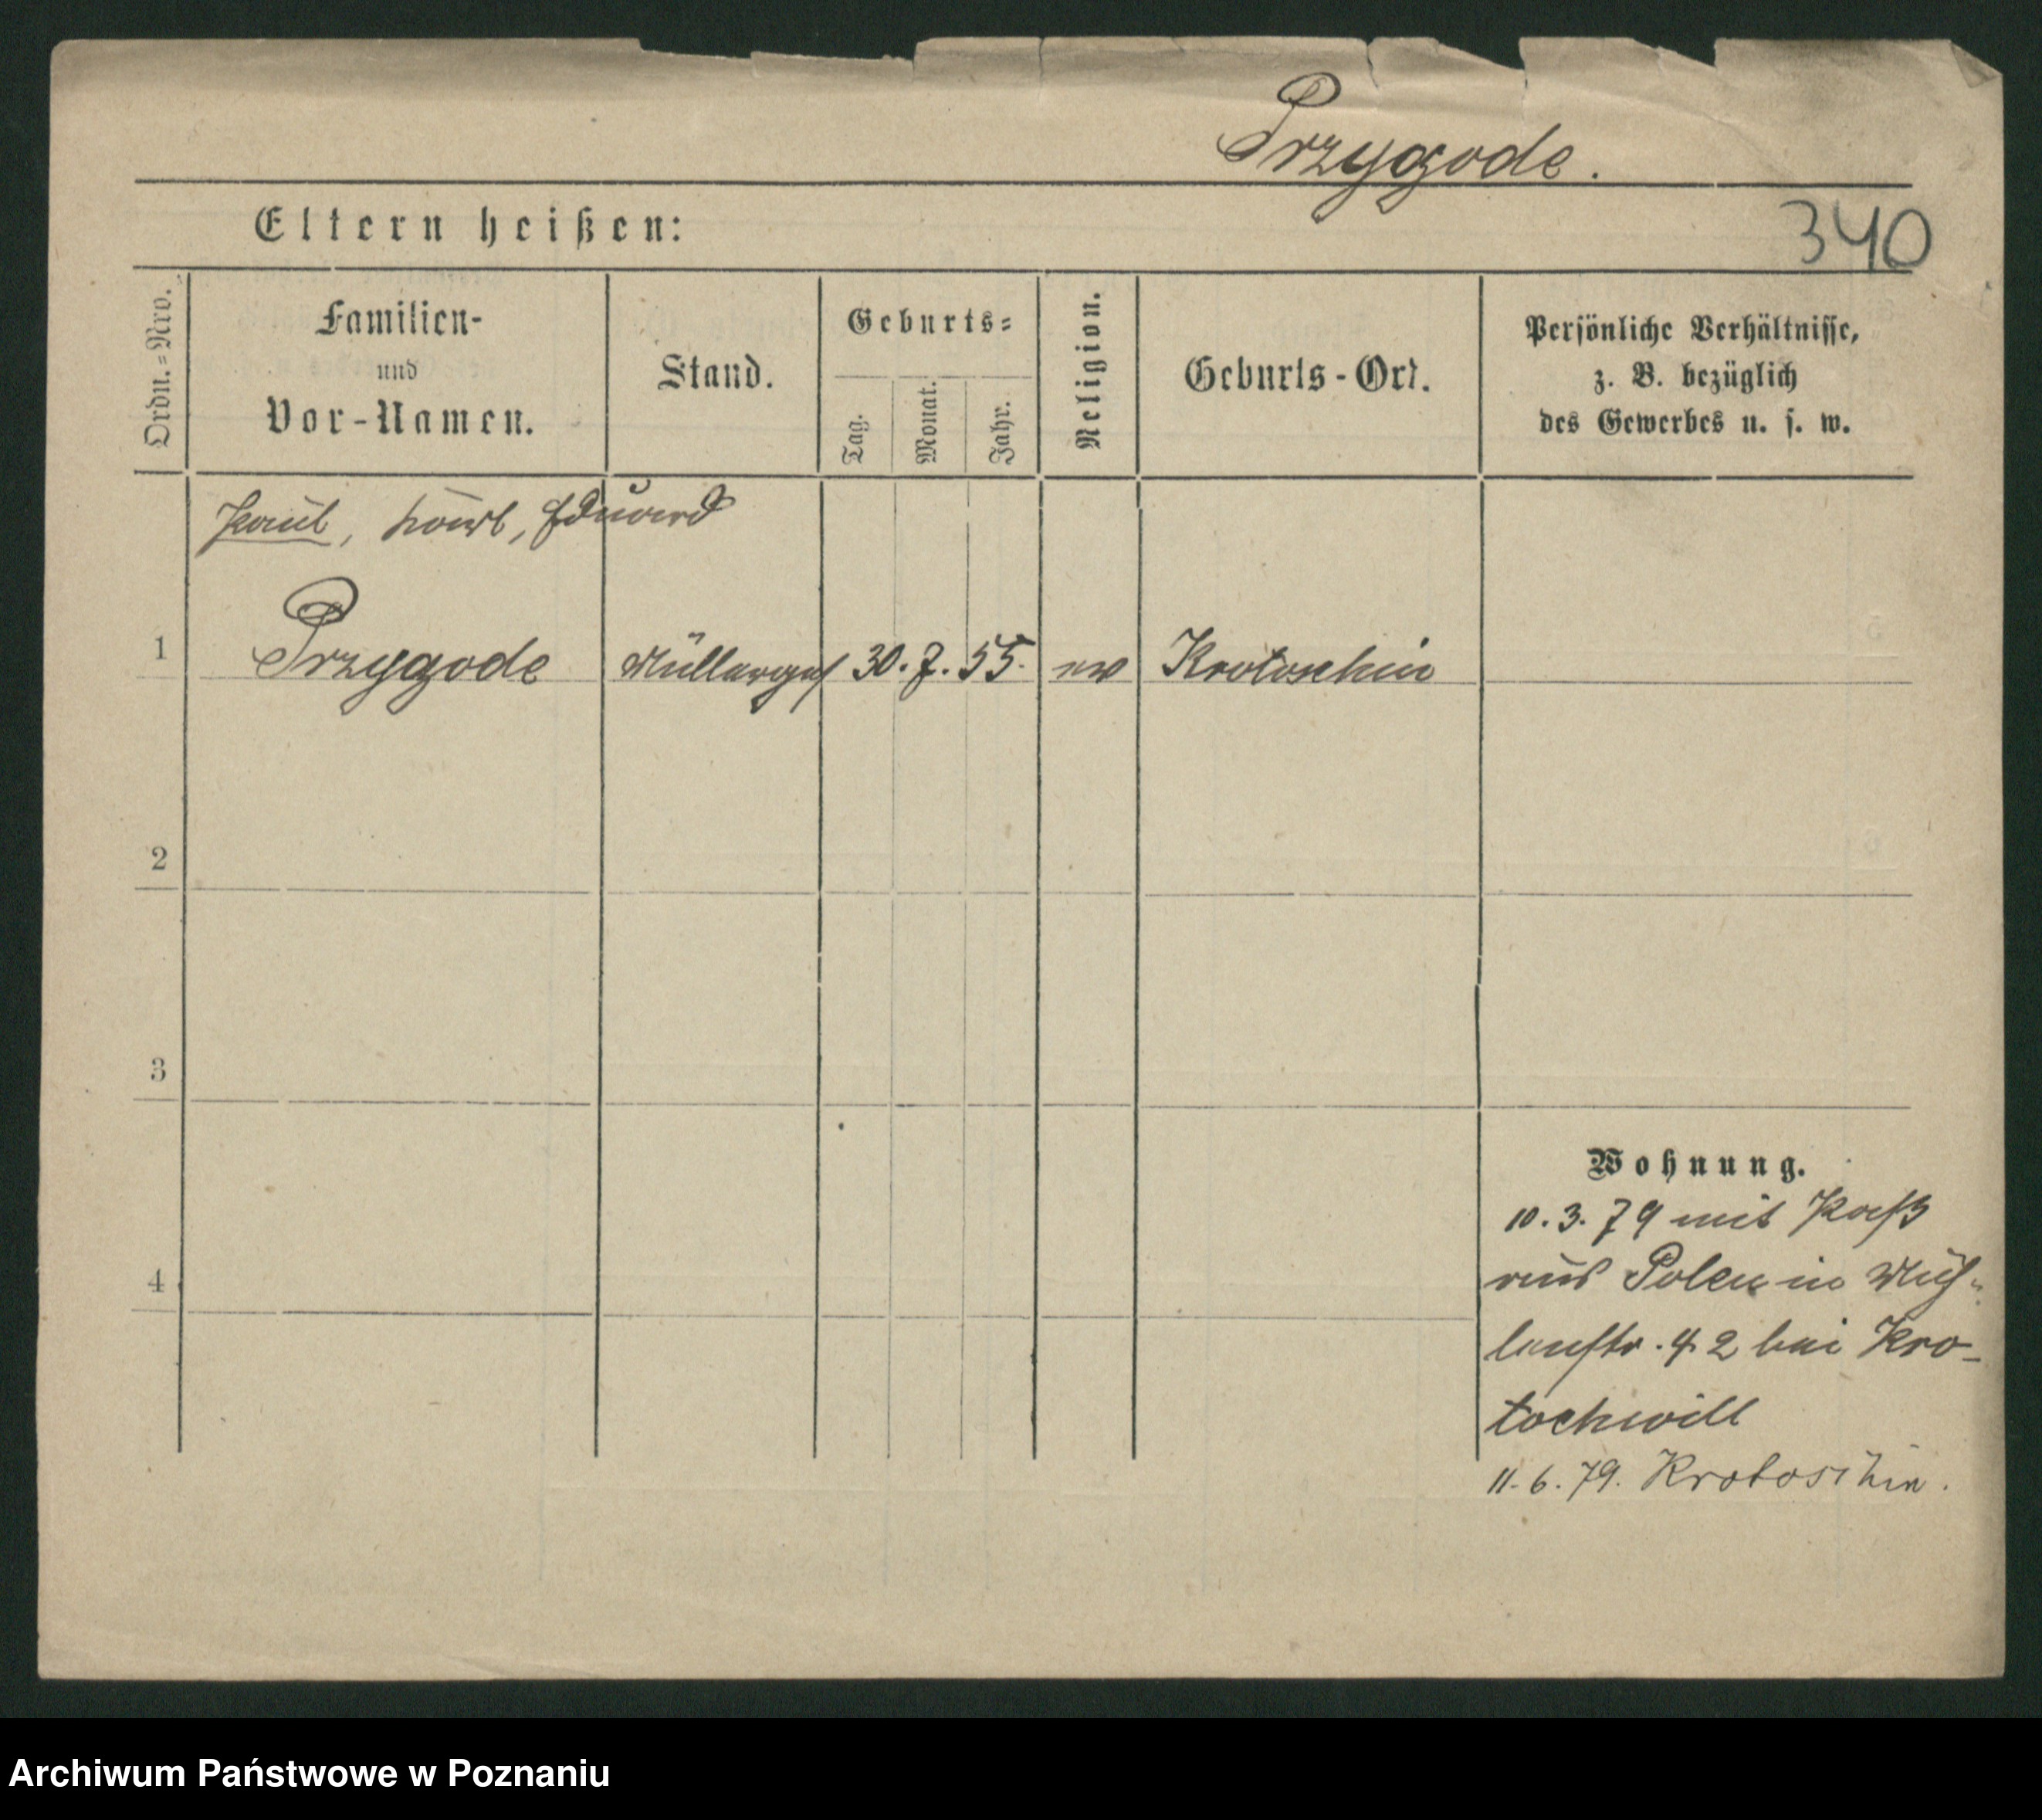 Przygode.
340
Eltern heißen:
Ordn.-Nro.
Familien-
und
Vor-Namen.
Stand.
Geburts-
Tag.
Monat.
Jahr.
Religion.
Geburts-Ort.
Persönliche Verhältnisse,
z. B. bezüglich
des Gewerbes u. s. w.
Paul, Karl, Eduard
1 Przygode Müllerges 30. 7. 55. ev Krotoschin
2
3
4
Wohnung.
10. 3. 79 mit Paß
aus Polen in Müh-
lenstr. 42 bei Kro-
tochwill
11. 6. 79. Krotoschin.
Archiwum Państwowe w Poznaniu